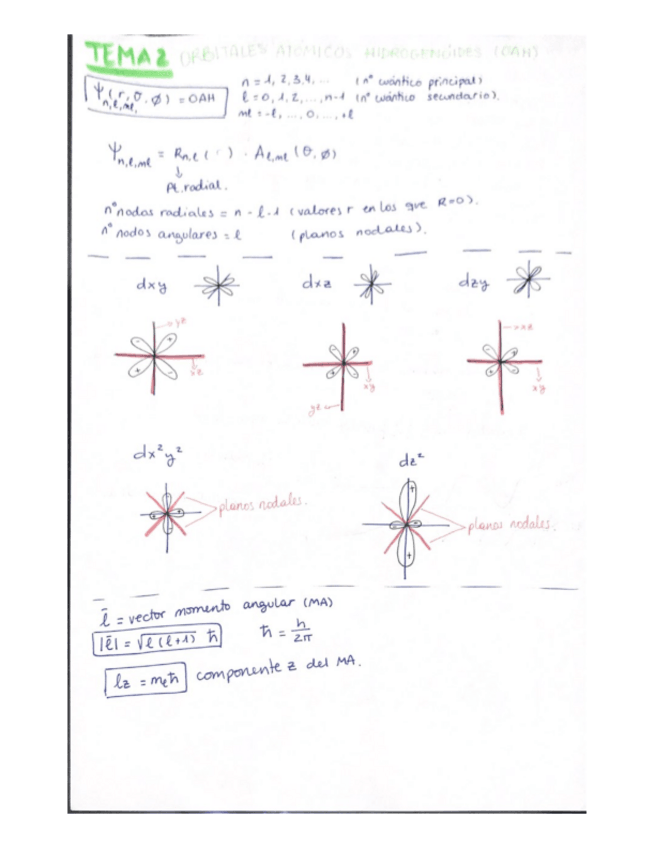 TEMA 2 ORBITALES ATÓMICOS HIDROGENOIDES (OAH)
Ψn,l,ml (r, θ, ø) = OAH
n = 1, 2, 3, 4, ... (nº cuántico principal)
l = 0, 1, 2, ..., n-1 (nº cuántico secundario).
ml = -l, ..., 0, ..., +l
Ψn,l,ml = Rn,l ( ) · Al,ml (θ, ø)
↓
Pt. radial.
nº nodos radiales = n - l - 1 (valores r en los que R=0).
nº nodos angulares = l (planos nodales).
dxy dxz dzy
yz
xz
xy
yz
xz
xy
dx²y² dz²
planos nodales.
planos nodales.
l̄ = vector momento angular (MA)
|l̄| = √l(l+1) ħ ħ = h/2π
lz = mlħ componente z del MA.